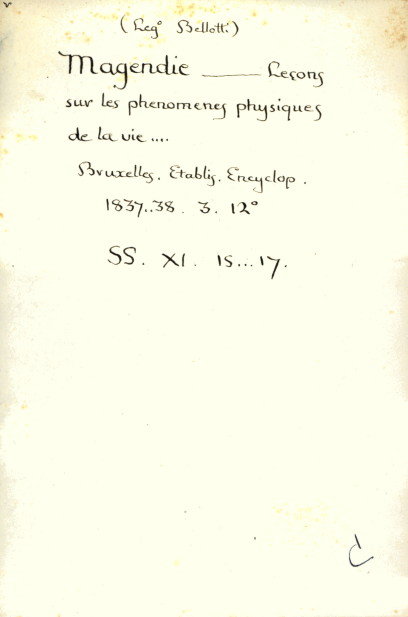 (Leg° Bellotti)
Magendie — Leçons
sur les phenomenes physiques
de la vie ....
Bruxelles. Etablis. Encyclop.
1837..38. 3. 12°
SS. XI. 15...17.